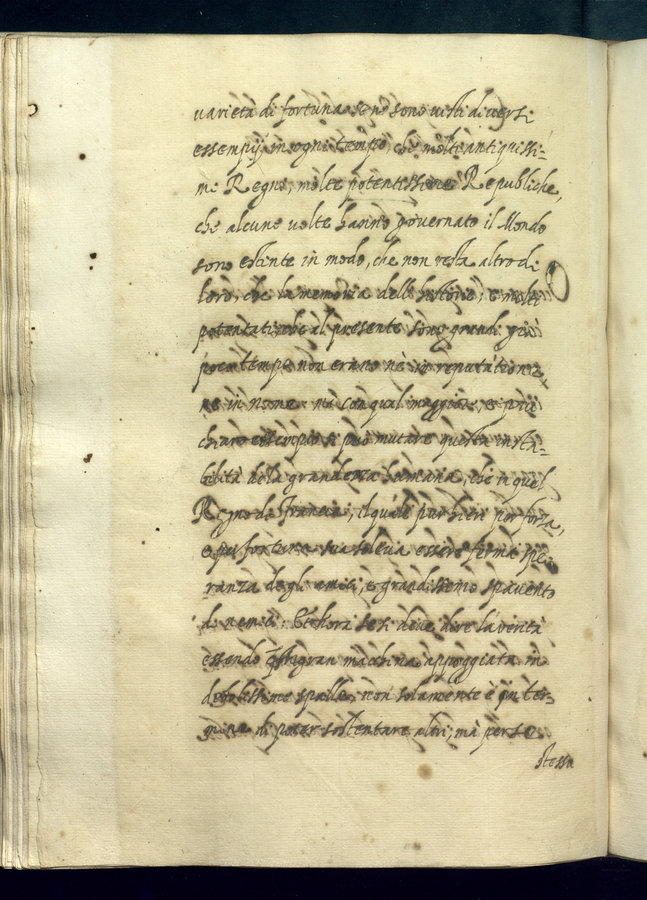 varietà di fortuna se nò sono visti diversi
essempij in ogni tempo, che molti antiquissi-
mi Regni, molte potentissime Republiche,
che alcune volte hanno governato il Mondo
sono estinte in modo, che non resta altro di
loro, che la memoria delle historie, e molti
potentati che al presente sono grandi già
poco tempo non erano nè in reputatione
ne in nome. mà con qual maggior, e più
chiaro essempio si può mutare questa insta-
bilità dela grandezza humana, che in quel
Regno di Francia, il quale pur hieri per forza,
e per fortuna sua soleva essere ferma spe-
ranza degli amici, e grandissimo spavento
di nemici. Et hora se si deve dire la verità
essendo gran macchina appoggiata in
debolissime spalle, non solamente è in ter-
mine di poter sostentare altri, mà per se
stessa